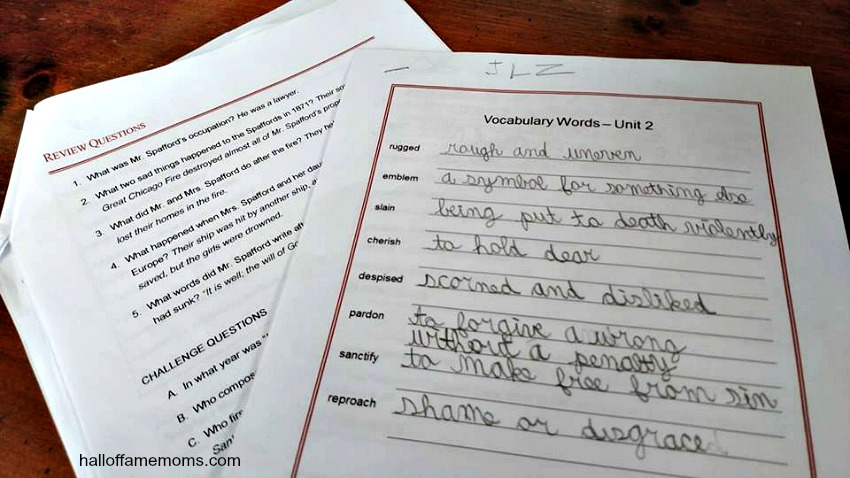 REVIEW QUESTIONS
1. What was Mr. Spafford's occupation? He was a lawyer.
2. What two sad things happened to the Spaffords in 1871? Their
Great Chicago Fire destroyed almost all of Mr. Spafford's
3. What did Mr. and Mrs. Spafford do after the fire? They
lost their homes in the fire.
4. What happened when Mrs. Spafford and her
Europe? Their ship was hit by another ship,
saved, but the girls were drowned.
5. What words did Mr. Spafford write
had sunk? "It is well; the will of
CHALLENGE QUESTIONS
A. In what year was
B. Who
C. Who
JLZ
Vocabulary Words – Unit 2
rugged rough and uneven
emblem a symbol for something else
slain being put to death violently
cherish to hold dear
despised scorned and disliked
pardon to forgive a wrong
without a penalty
sanctify to make free from sin
reproach shame or disgrace
halloffamemoms.com